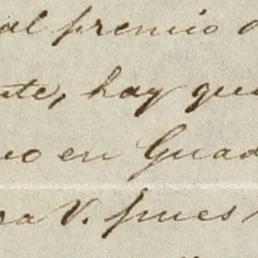 al premio
nte, hay que
o en Guad
ra V. pues